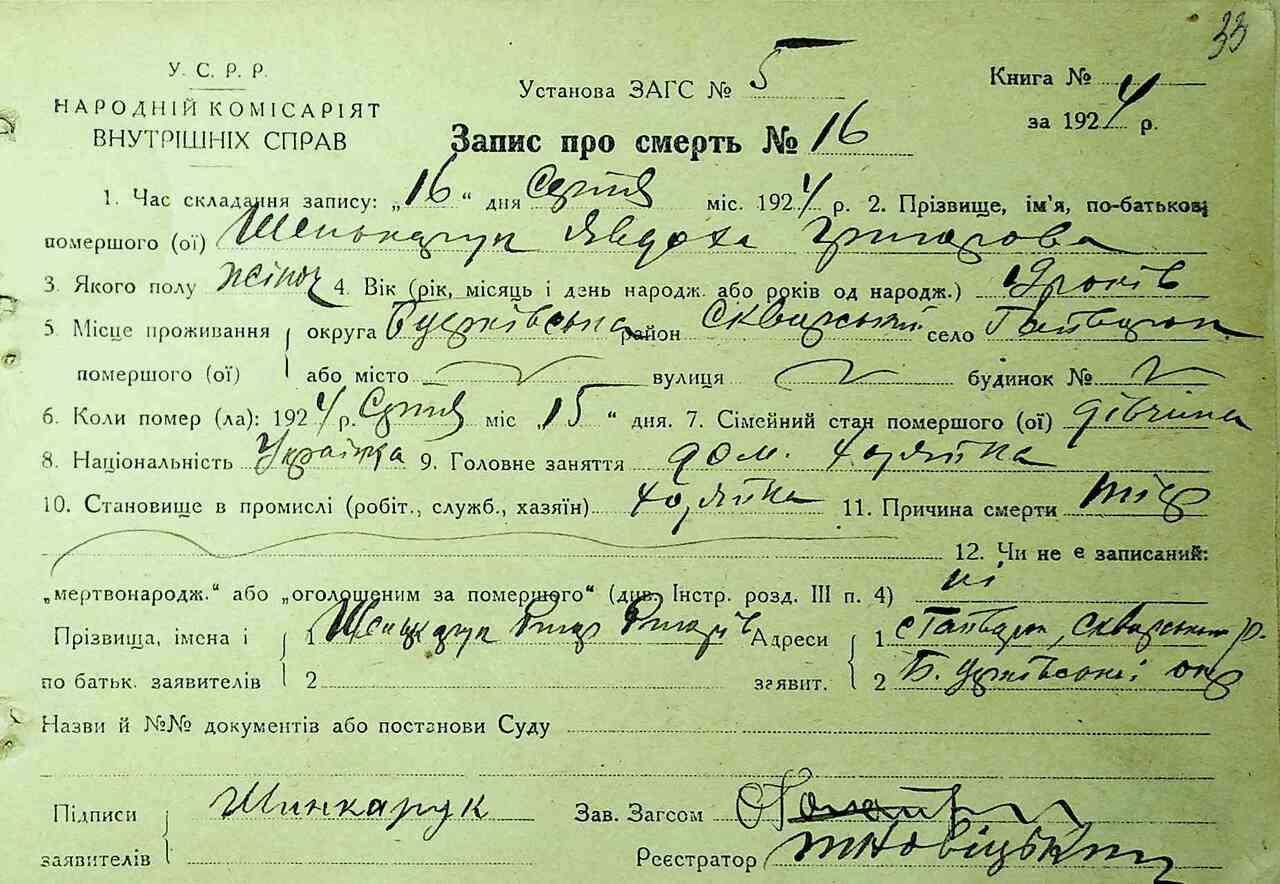 33
У. С. Р. Р.
НАРОДНІЙ КОМІСАРІЯТ
ВНУТРІШНІХ СПРАВ
Установа ЗАГС № 5
Книга №
за 1924 р.
Запис про смерть № 16
1. Час складання запису: „16“ дня Серпня міс. 1924 р. 2. Прізвище, ім'я, по-батькові
помершого (ої) Явдоха Григорова
3. Якого полу жіноч 4. Вік (рік, місяць і день народж. або років од народж.) років
5. Місце проживання округа район Сквирський село Гайворон
помершого (ої) або місто вулиця будинок №
6. Коли помер (ла): 1924 р. Серпня міс „15“ дня. 7. Сімейний стан помершого (ої) дівчина
8. Національність Українка 9. Головне заняття дом. хозяйка
10. Становище в промислі (робіт., служб., хазяїн) хозяйка 11. Причина смерти
12. Чи не є записаний:
„мертвонародж.“ або „оголошеним за помершого“ (див. Інстр. розд. III п. 4) ні
Прізвища, імена і 1 Адреси 1 с Гайворон, Сквирський р.
по батьк. заявителів 2 заявит. 2 Б. Церківської окр
Назви й №№ документів або постанови Суду
Підписи Шинкарук Зав. Загсом
заявителів Реєстратор Новіцький